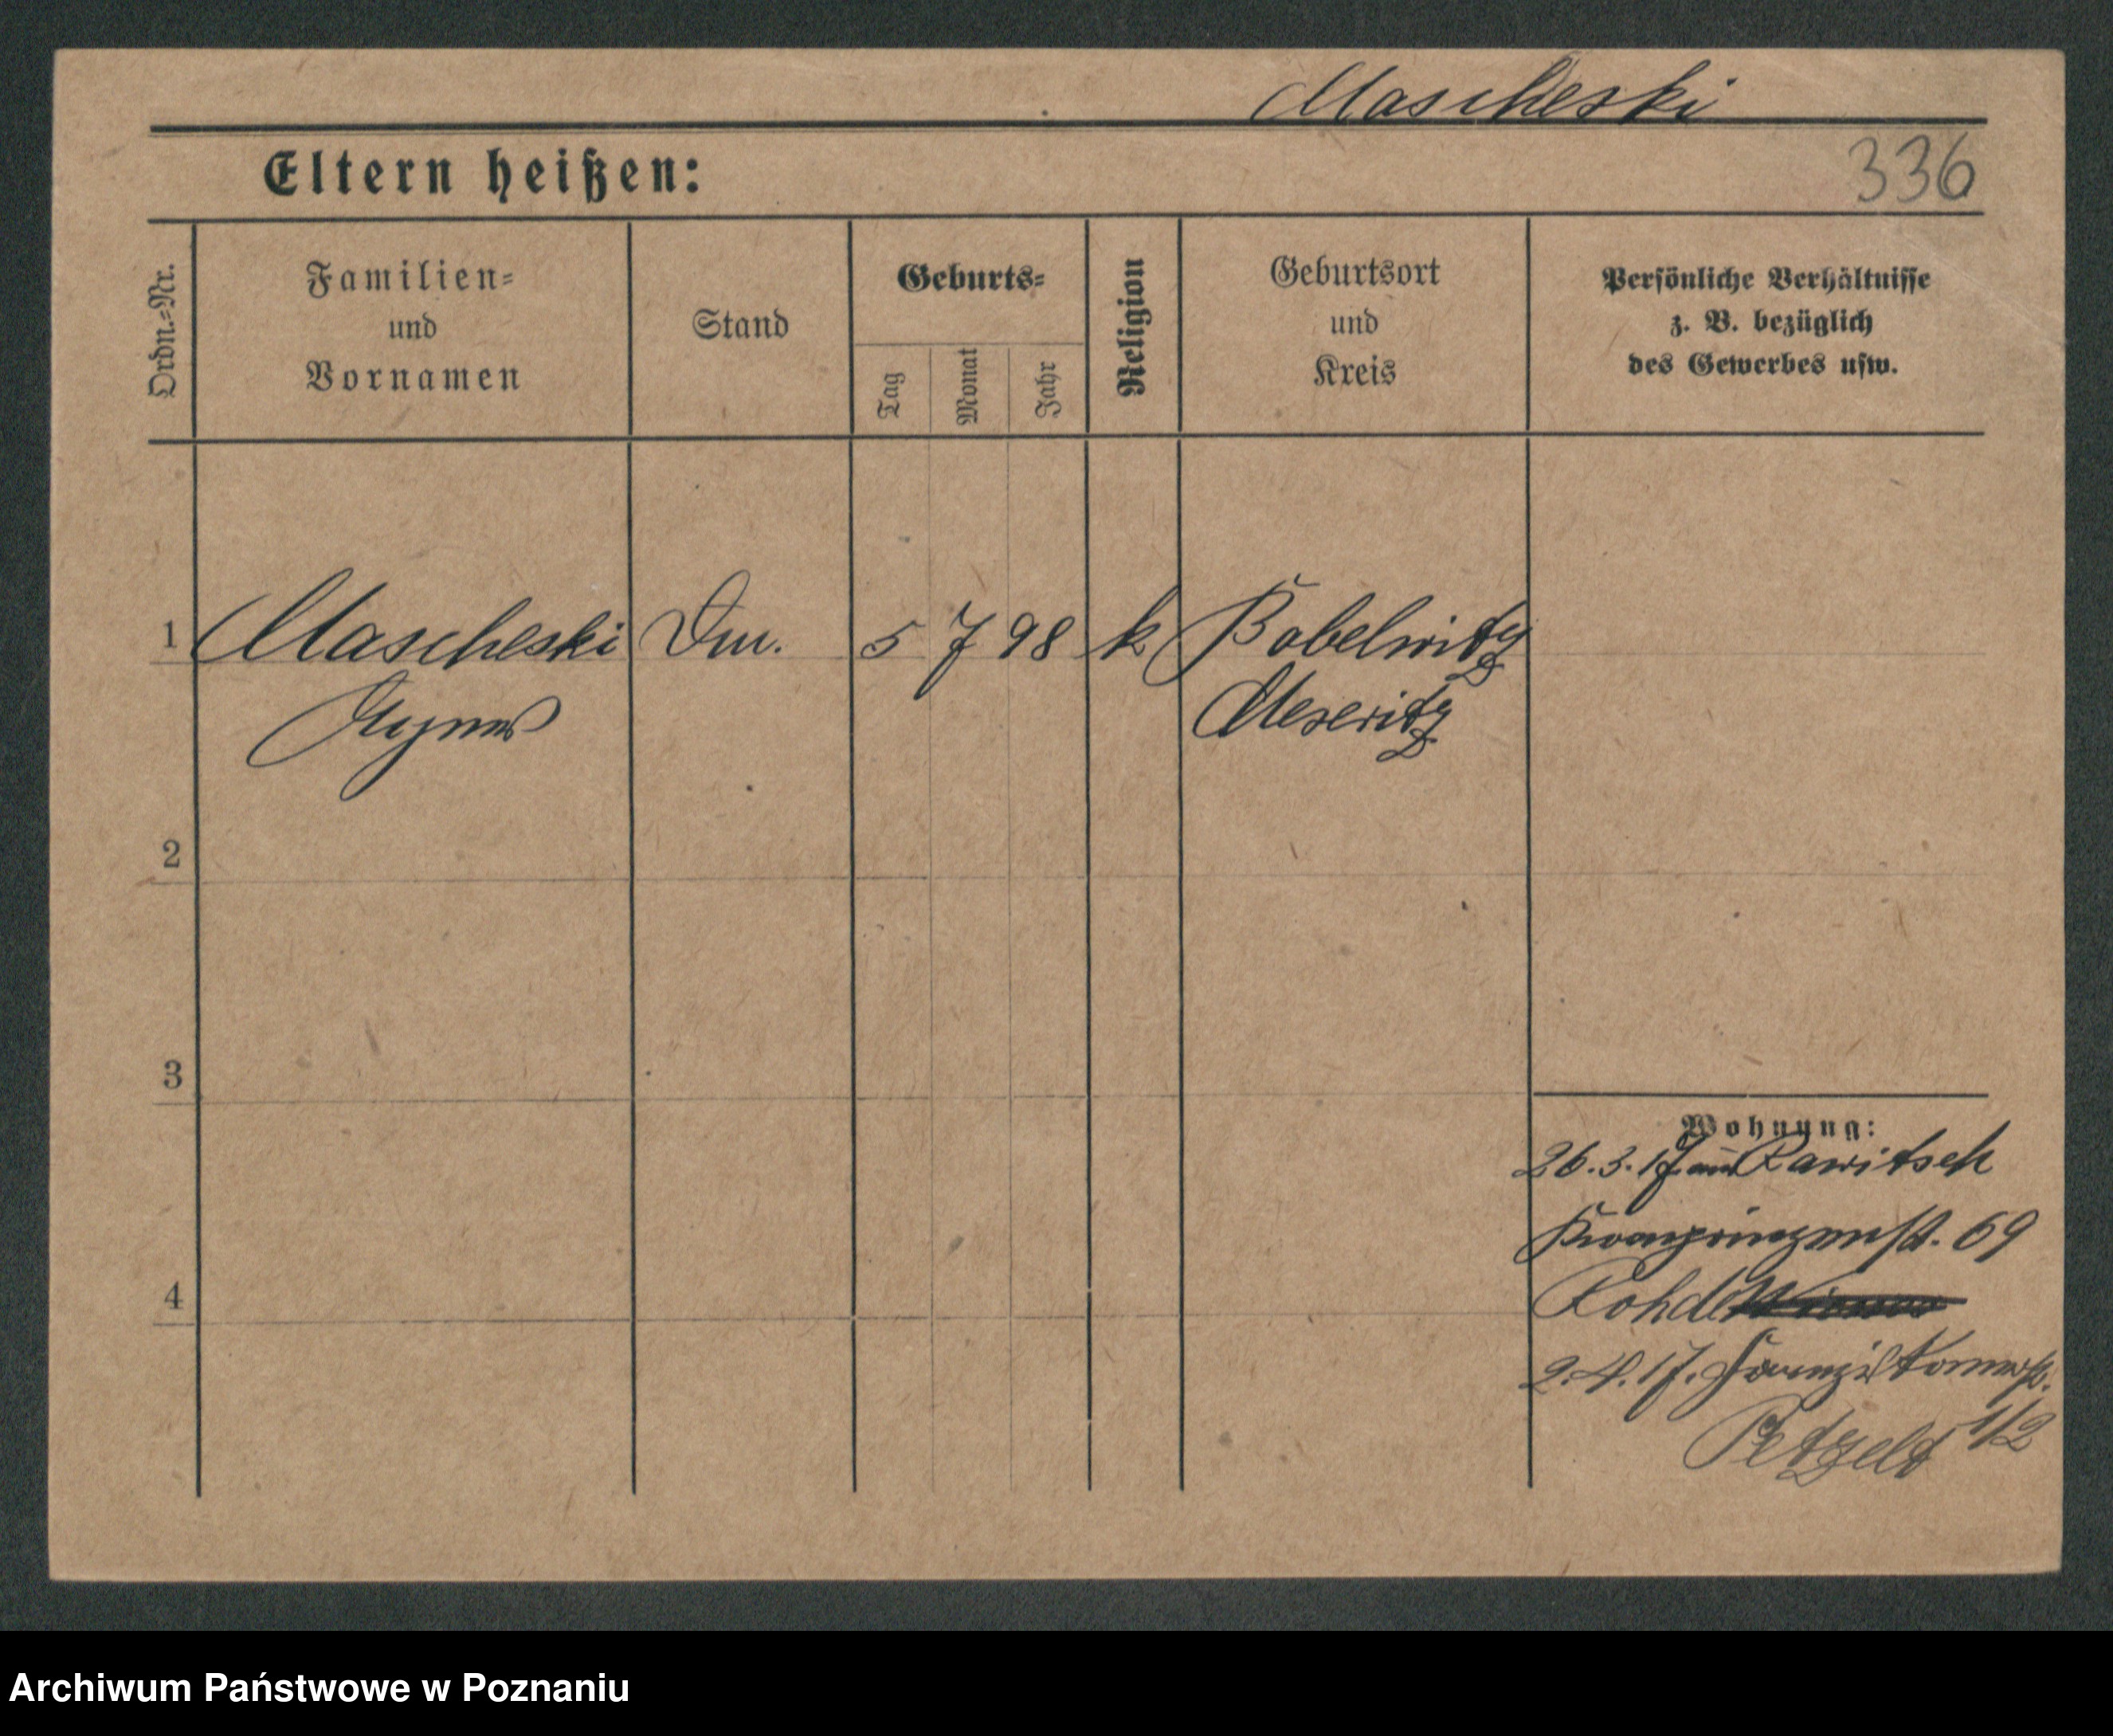 Mascheski
Eltern heißen:
336
Ordn.-Nr.
Familien-
und
Vornamen
Stand
Geburts-
Tag
Monat
Jahr
Religion
Geburtsort
und
Kreis
Persönliche Verhältnisse
z. B. bezüglich
des Gewerbes usw.
1 Mascheski 5 7 98 k Bobelwitz
Agnes Meseritz
2
3
4
Wohnung:
26.3.17. aus Rawitsch
Kronprinzenst. 69
Rohde
2.4.17.
1/2
Petzelt
Archiwum Państwowe w Poznaniu